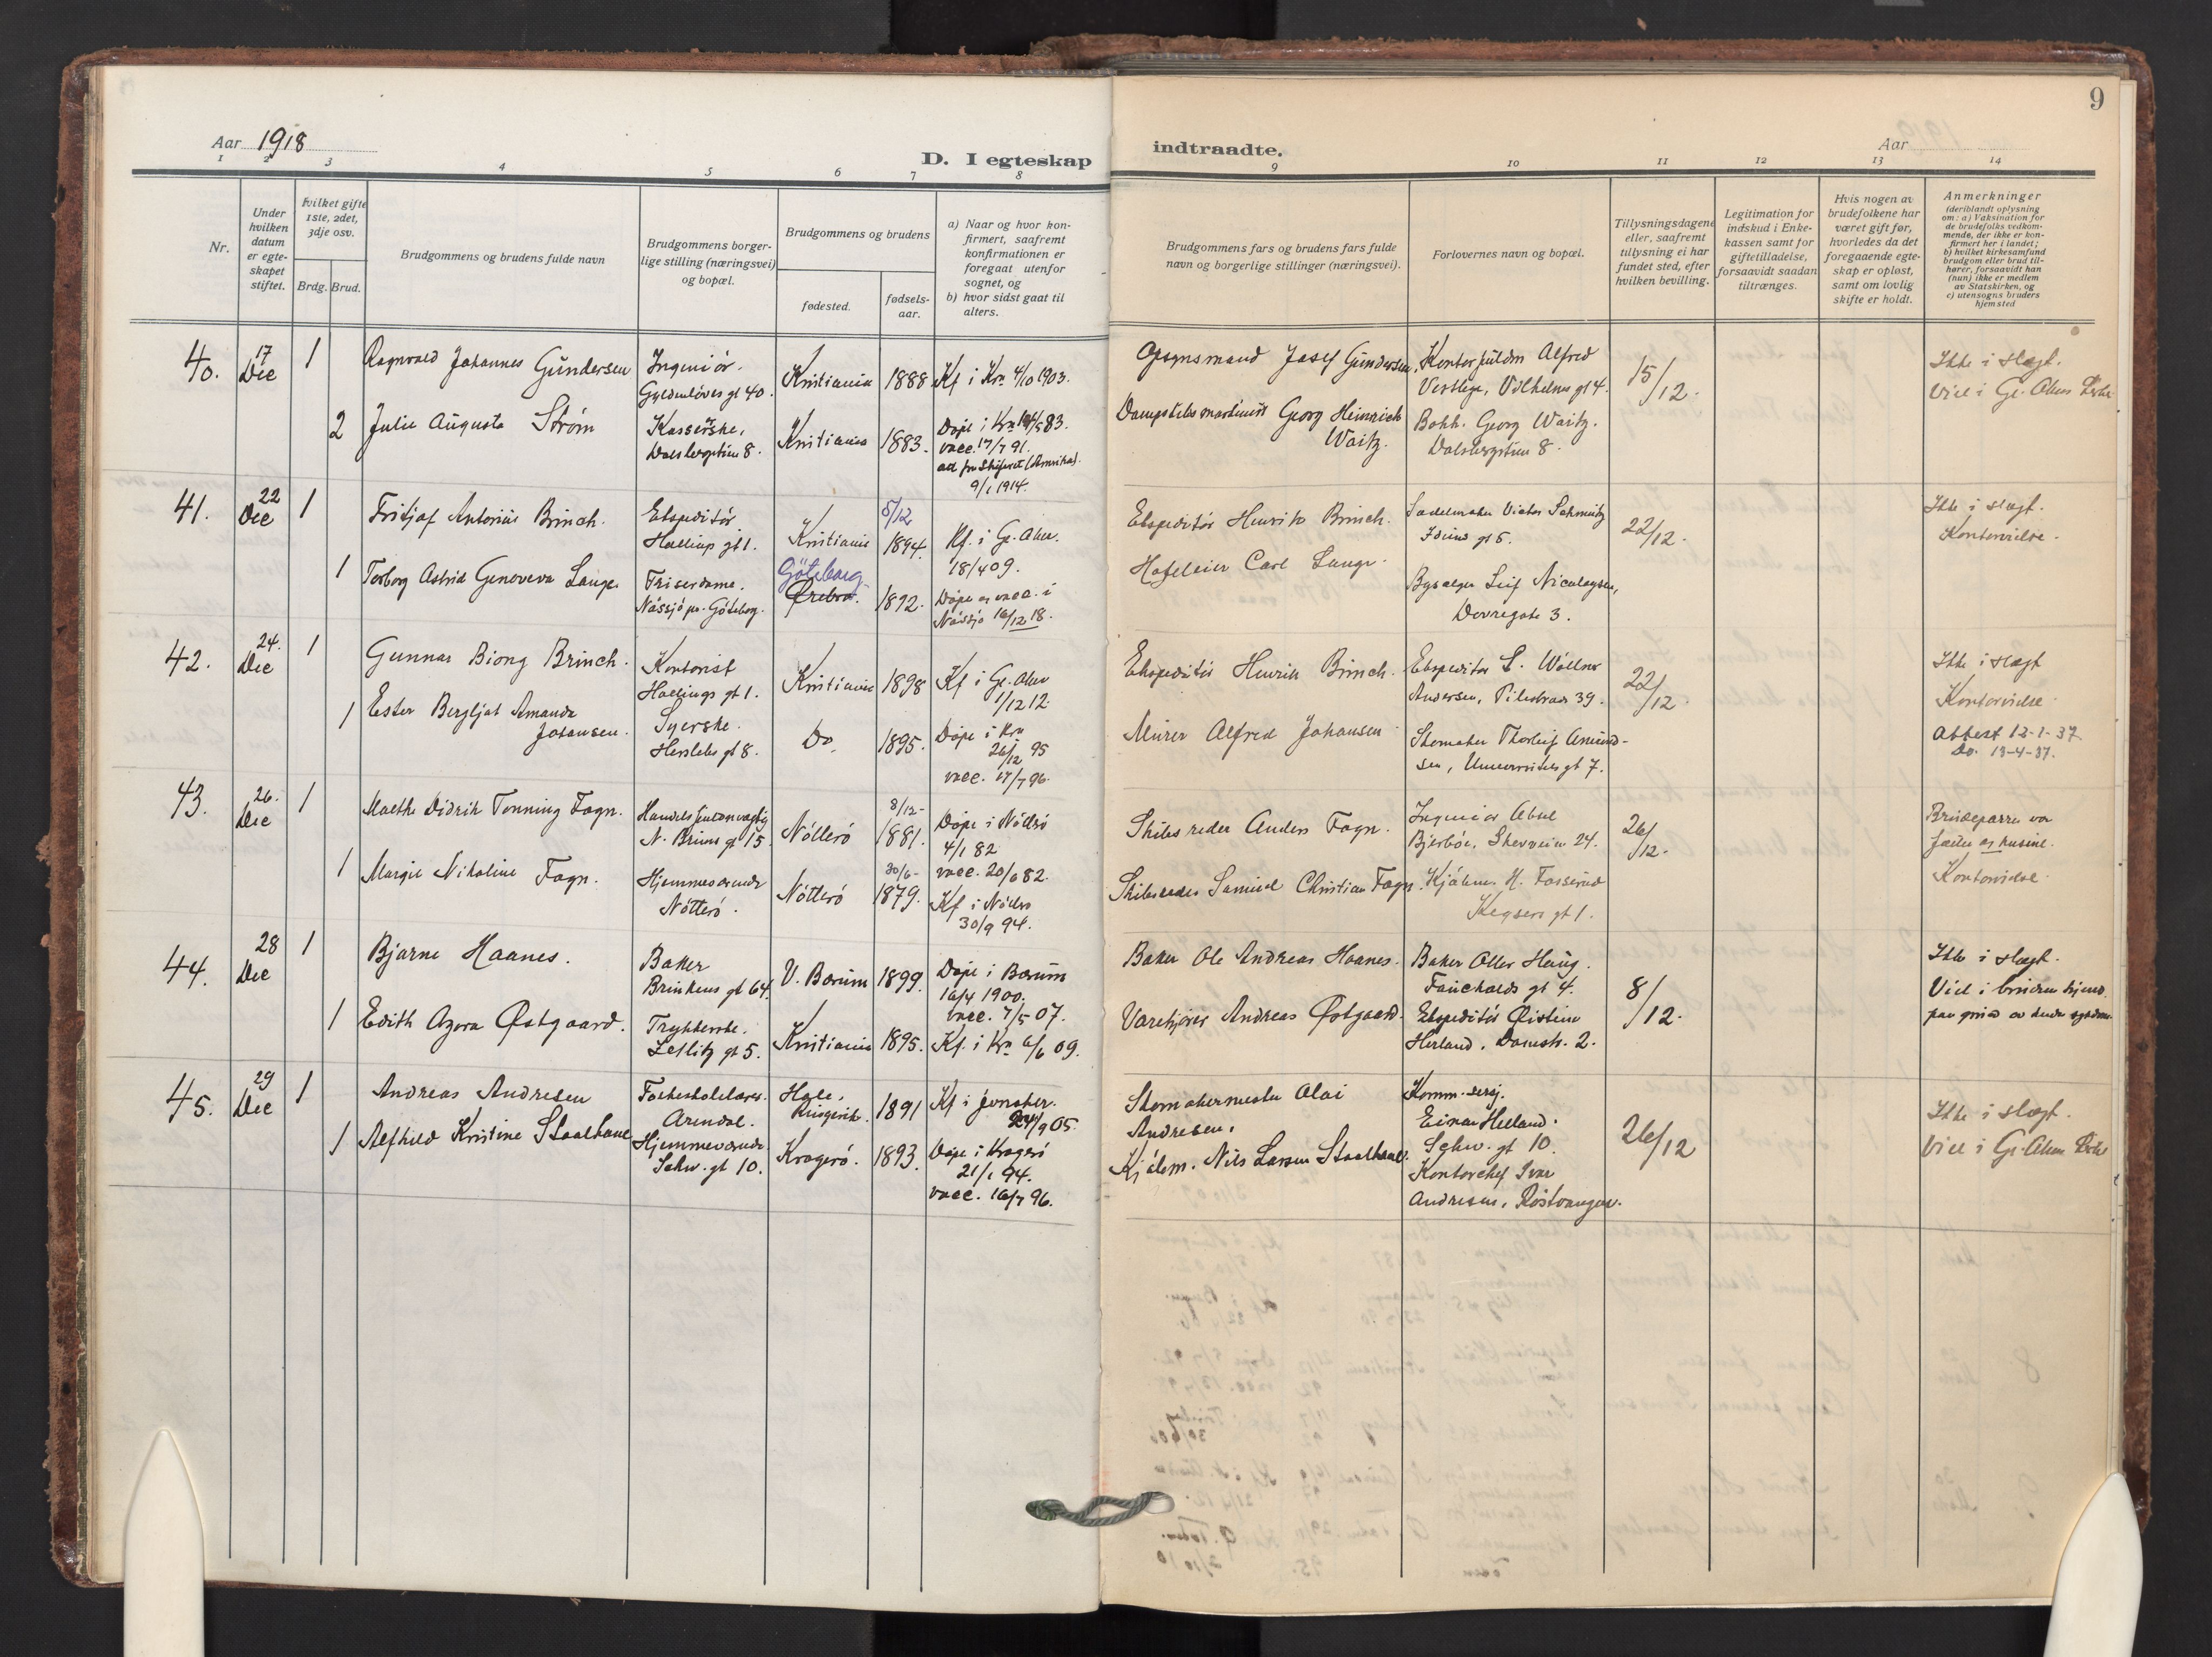 9
Aar 1918
D. I egteskap indtraadte.
Aar
1 2 3 4 5 6 7 8 9 10 11 12 13 14
Nr.
Under hvilken datum er egte-skapet stiftet.
Hvilket gifte 1ste, 2det, 3dje osv.
Brdg. Brud.
Brudgommens og brudens fulde navn
Brudgommens borger-
lige stilling (næringsvei)
og bopæl.
Brudgommens og brudens
fødested.
fødsels-
aar.
a) Naar og hvor kon-
firmert, saafremt
konfirmationen er
foregaat utenfor
sognet, og
b) hvor sidst gaat til
alters.
Brudgommens fars og brudens fars fulde
navn og borgerlige stillinger (næringsvei).
Forlovernes navn og bopæl.
Tillysningsdagene
eller, saafremt
tillysning ei har
fundet sted, efter
hvilken bevilling.
Legitimation for
indskud i Enke-
kassen samt for
giftetilladelse,
forsaavidt saadan
tiltrænges.
Hvis nogen av
brudefolkene har
været gift før,
hvorledes da det
foregaaende egte-
skap er opløst,
samt om lovlig
skifte er holdt.
Anmerkninger
(deriblandt oplysning
om: a) Vaksination for
de brudefolks vedkom-
mende, der ikke er kon-
firmert her i landet;
b) hvilket kirkesamfund
brudgom eller brud til-
hører, forsaavidt han
(hun) ikke er medlem
av Statskirken, og
c) utensogns bruders
hjemsted
40. 17 Dec 1 Ragnvald Johannes Gundersen
Ingeniør.
Gyldenløves gt 40.
Kristiania 1888 Kf i Kra. 4/10 1903.
Josef Gundersen.
Kontorfuldm Alfred
Vestlye, Vilhelms gt 4.
15/12.
Ikke i slegt.
Viet i Gl. Akers Kirke
2 Julie Augusta Strøm
Kassererske.
Dalsbergstien 8.
Kristiania 1883.
vacc. 17/7 91.
9/1 1914.
Georg Heinrich
Waitz.
Bokh. Georg Waitz.
Dalsbergstien 8.
41. 22 Dec 1 Fritjof Antonius Brinch.
Ekspeditør
Hallings gt 1.
Kristiania 5/12 1894.
Kf. i Gl. Aker.
18/4 09.
Ekspeditør Henrik Brinch.
Sadelmaker Victor Schmutz
22/12.
Ikke i slegt.
Kontorvielse.
1 Torborg Astrid Genoveva Lange
Friserdame.
Nässjö pr. Göteborg.
Göteborg
Ørebro. 1892.
Døpt og vacc. i
Nässjö 16/12 18.
Hofeleier Carl Lange.
Leif Nicolaysen,
Dovregate 3.
42. 24. Dec 1 Gunnar Biong Brinch.
Kontorist
Hallings gt 1.
Kristiania 1898
Kf i Gl. Aker
1/12 12.
Ekspeditør Henrik Brinch.
Ekspeditør L. Wøllner
Andersen, Pilestræde 39.
22/12.
Ikke i slegt
Kontorvielse.
1 Ester Bergljot Amanda
Johansen.
Syerske.
Herslebs gt 8.
Do. 1895.
Døpt i Kra
26/12 95
vacc. 17/7 96.
Murer Alfred Johansen
Skomaker Thorleif Amund-
sen, Universitets gt 7.
Attest 12-1-37
Do. 13-4-37.
43. 26. Dec 1 Malthe Didrik Tonning Fagn.
N. Bruns gt 15
Nøtterø 8/12- 1881.
Døpt i Nøtterø
4/1 82
vacc. 20/6 82.
Skibsreder Anders Fagn.
Ingeniør Aksel
Bjerbøe, 24.
26/12.
Brudeparret var
fætter og kusine.
Kontorvielse.
1 Margit Nikoline Fagn.
Hjemmeværende
Nøtterø.
Nøtterø 30/6- 1879.
Kf i Nøtterø
30/9 94.
Skibsreder Samuel Christian Fagn.
Kjøbm. H. Fosserud
Keysers gt 1.
44. 28 Dec 1 Bjarne Haanes.
Baker
Brinkens gt 64.
V. Bærum 1899.
Døpt i Bærum
16/4 1900.
vacc. 7/5 07.
Baker Ole Andreas Haanes.
Baker Haug.
Faucholds gt 4.
8/12.
Ikke i slegt.
Viet i brudens hjem
paa grund av hendes sygdom.
1 Edith Agora Østgaard.
Trykkerske.
Zetlitz gt 5.
Kristiania 1895.
Kf. i Kra 6/6 09.
Varekjører Andreas Østgaard.
Ekspeditør Øistein
Herland, Damstr. 2.
45. 29 Dec 1 Andreas Andresen
Folkeskolelærer.
Arendal.
Hole,
Ringerike. 1891
Kf i Jevnaker.
24/9 05.
Skomakermester Olai
Andresen.
Komm. sersj.
Einar Helland.
Schw. gt 10.
26/12
Ikke i slegt.
Viet i Gl. Akers Kirke
1 Alfhild Kristine Staalhane
Hjemmeværende
Schw. gt 10.
Kragerø. 1893.
Døpt i Kragerø
21/1 94.
vacc. 16/7 96.
Kjøbm. Nils Larsen Staalhane.
Kontorchef Ivar
Andresen, Røstvangen.